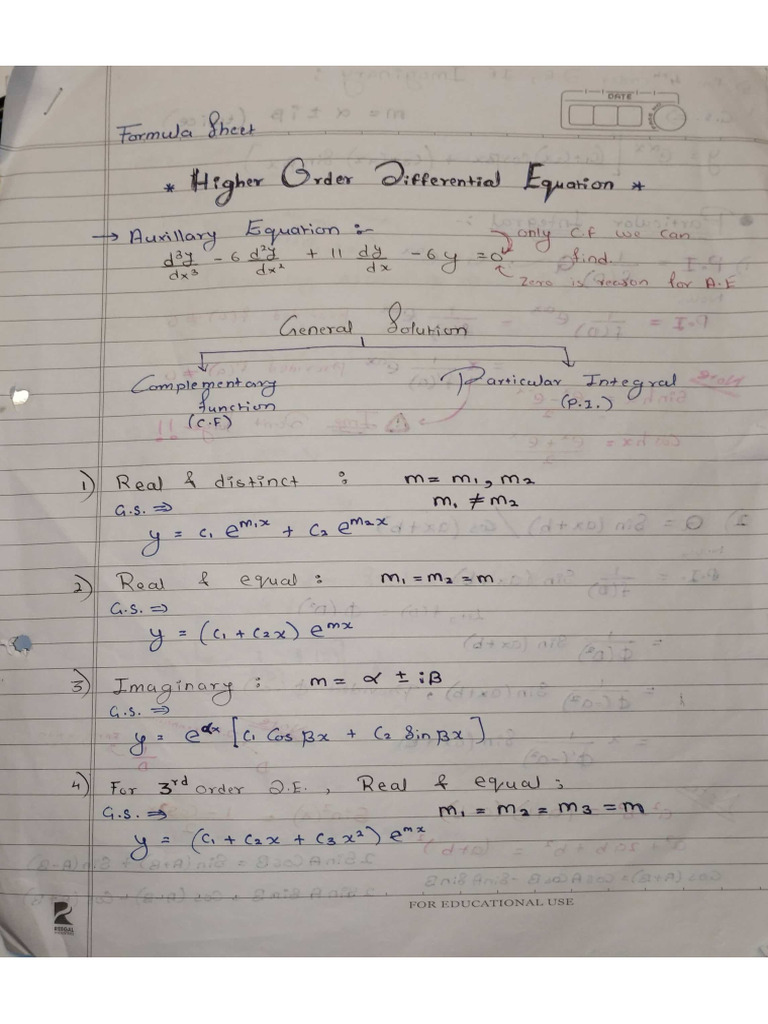 DATE
Formula Sheet
* Higher Order Differential Equation *
→ Auxillary Equation :-
only C.F we can
d³y/dx³ - 6 d²y/dx² + 11 dy/dx - 6y = 0
find.
Zero is reason for A.E
General Solution
Complementary function (C.F)
Particular Integral (P.I.)
1) Real & distinct : m = m₁, m₂
G.S. ⇒ m₁ ≠ m₂
y = c₁ e^m₁x + c₂ e^m₂x
2) Real & equal : m₁ = m₂ = m
G.S. ⇒
y = (c₁ + c₂x) e^mx
3) Imaginary : m = α ± iβ
G.S. ⇒
y = e^αx [c₁ cos βx + c₂ sin βx]
4) For 3rd order D.E., Real & equal :
G.S. ⇒ m₁ = m₂ = m₃ = m
y = (c₁ + c₂x + c₃x²) e^mx
FOR EDUCATIONAL USE